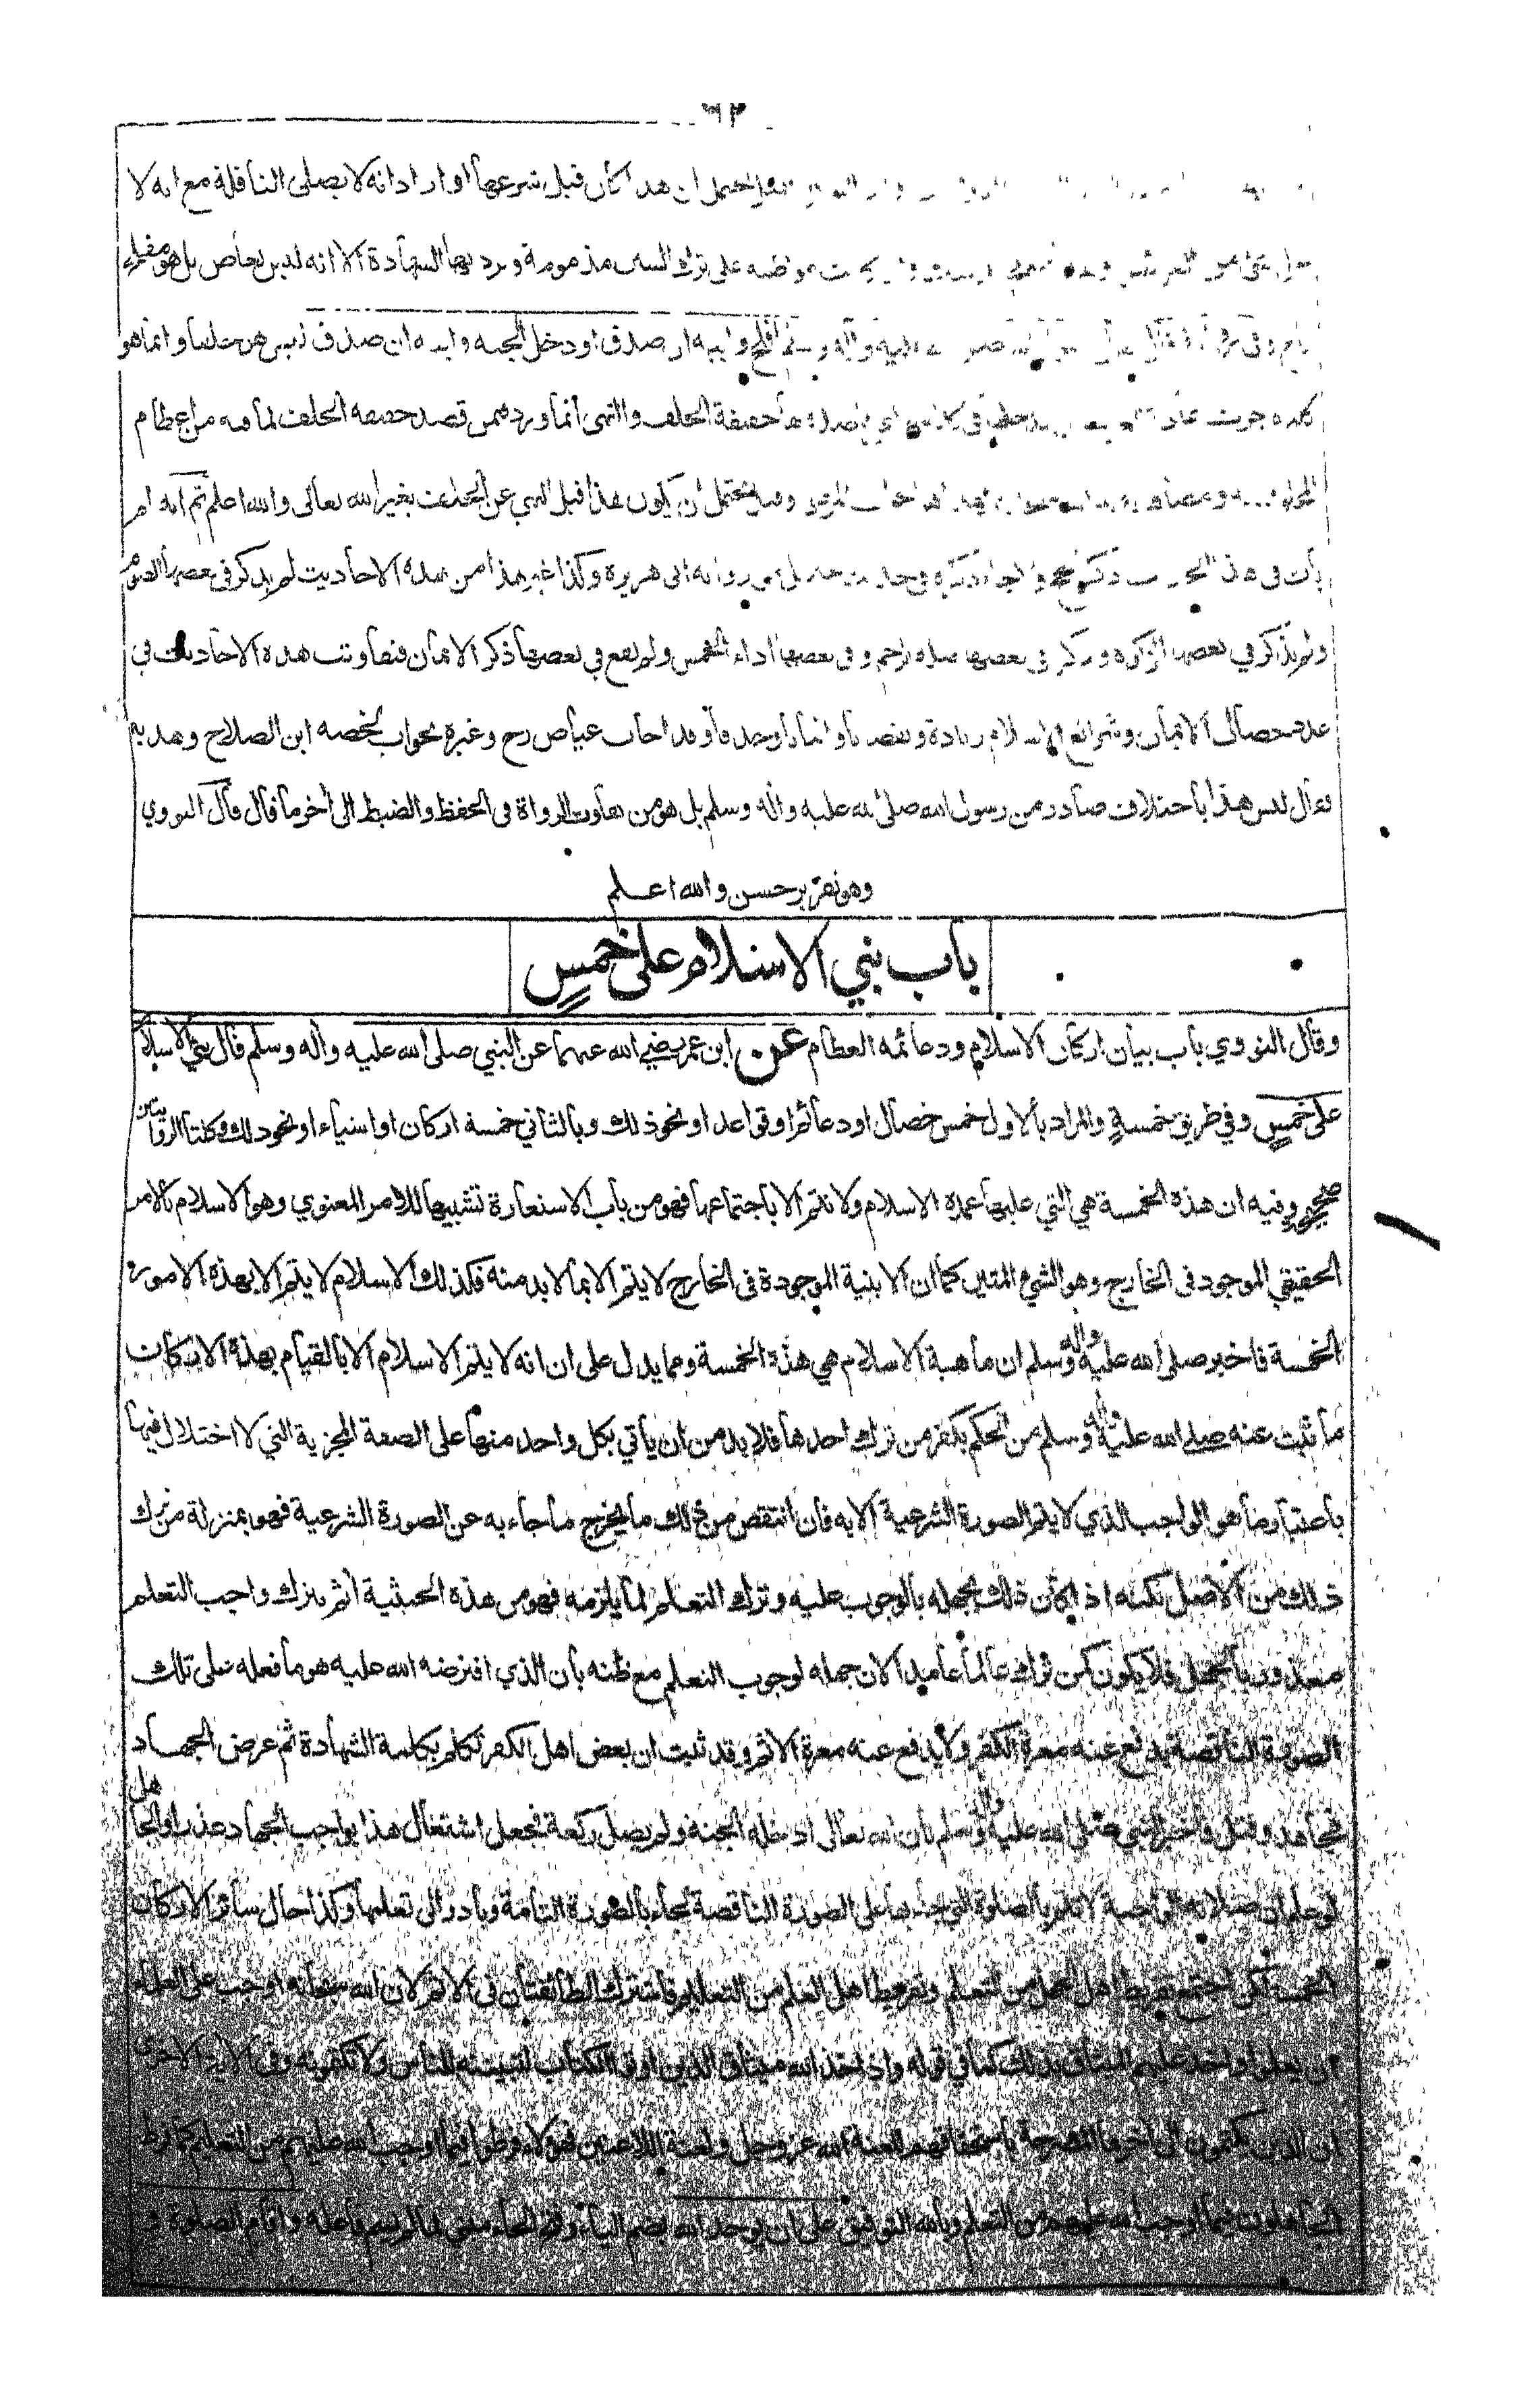 ٦٢
يحتمل ان هذا كان قبل شرعها او اراد انه لا يصلي النافلة مع انه لا
مواظبته على ترك السنن مذمومة وترد بها الشهادة الا انه ليس بعاص بل هو مفلح
وفي رواية فقال صلى الله عليه وآله وسلم افلح وابيه ان صدق او دخل الجنة وابيه ان صدق ليس هو حلفا وانما هو
كلمة جرت عادة حقيقة الحلف والنهي انما ورد فيمن قصد حقيقة الحلف لما فيه من اعظام
وقيل يحتمل ان يكون هذا قبل النهي عن الحلف بغير الله تعالى والله اعلم ثم انه لم
يأت في هذا ذكر الحج ولا جاء ذكره في حديث جبريل من رواية ابي هريرة وكذا غير هذا من هذه الاحاديث لم يذكر في بعضها الصوم
ولم يذكر في بعضها الزكوة وذكر في بعضها صلة الرحم وفي بعضها اداء الخمس ولم يقع في بعضها ذكر الايمان فتفاوتت هذه الاحاديث في
عدد خصال الايمان زيادة ونقصا واثباتا وحذفا وقد اجاب عياض رح وغيره بجواب لخصه ابن الصلاح وهذبه
فقال ليس هذا باختلاف صادر من رسول الله صلى الله عليه وآله وسلم بل هو من تفاوت الرواة في الحفظ والضبط الى آخر ما قال قال النووي
وهو تقرير حسن والله اعلم
باب بني الاسلام على خمس
وقال النووي باب بيان اركان الاسلام ودعائمه العظام عن ابن عمر رضي الله عنهما عن النبي صلى الله عليه وآله وسلم قال بني الاسلام
على خمس وفي طريق خمسة والمراد بالاول خمس خصال او دعائم او قواعد او نحو ذلك وبالثاني خمسة اركان او اشياء او نحو ذلك وكلتا الروايتين
صحيح وفيه ان هذه الخمسة هي التي عليها عمدة الاسلام ولا تتم الا باجتماعها فهو من باب الاستعارة تشبيها للامر المعنوي وهو الاسلام بالامر
الحقيقي الموجود في الخارج وهو الشيء المتين كما ان الابنية الموجودة في الخارج لا يتم الا بما لا بد منه فكذلك الاسلام لا يتم الا بهذه الامور
الخمسة فاخبر صلى الله عليه وآله وسلم ان ماهية الاسلام هي هذه الخمسة ومما يدل على ان انه لا يتم الاسلام الا بالقيام بهذه الاركان
ما ثبت عنه صلى الله عليه وآله وسلم من الحكم بكفر من ترك احدها فلا بد من ان يأتي بكل واحد منها على الصفة المجزية التي لا اختلال فيها
باعتبار ما هو الواجب الذي لا يتم الصورة الشرعية الا به فان انتقص من ذلك ما يخرج ما جاء به عن الصورة الشرعية فهو بمنزلة من ترك
ذلك من الاصل لكنه اذا كان ذلك لجهله بالوجوب عليه وترك التعلم لما يلزمه فهو من هذه الحيثية آثم بترك واجب التعلم
معذور بالجهل فلا يكون كمن ترك عالما عامدا لان جهله لوجوب التعلم مع ظنه بان الذي افترضه الله عليه هو ما فعله على تلك
الصورة الناقصة يدفع عنه معرة الكفر ولا يدفع عنه معرة الاثم وقد ثبت ان بعض اهل الكفر تكلم بكلمة الشهادة ثم عرض الجهاد
فجاهد وقتل واخبر النبي صلى الله عليه وآله وسلم بان الله تعالى ادخله الجنة ولم يصل ركعة فجعل اشتغال هذا بواجب الجهاد عذرا والجاهل
لو علم ان صلاته الواجبة لا تتم بالصلوة التي جاء بها على الصورة الناقصة لجاء بالصورة التامة وبادر الى تعلمها وكذا حال سائر الاركان
الخمسة لكن اجتمع تفريط اهل الجهل من التعلم وتفريط اهل العلم من التعليم فاشترك الطائفتان في الاثم لان الله سبحانه اوجب على العلماء
ان يعلموا واخذ عليهم الميثاق بذلك كما في قوله واذ اخذ الله ميثاق الذين اوتوا الكتاب لتبيننه للناس ولا تكتمونه وفي الآية الاخرى
ان الذين يكتمون الى آخرها المصرحة باستحقاقهم لعنة الله عز وجل ولعنة اللاعنين فهؤلاء فرطوا فيما اوجب الله عليهم من التعليم كما فرط
الجاهلون فيما اوجب الله عليهم من التعلم وبالله التوفيق على ان يوحد الله بضم الياء وفتح الحاء مبني لما لم يسم فاعله واقام الصلوة و